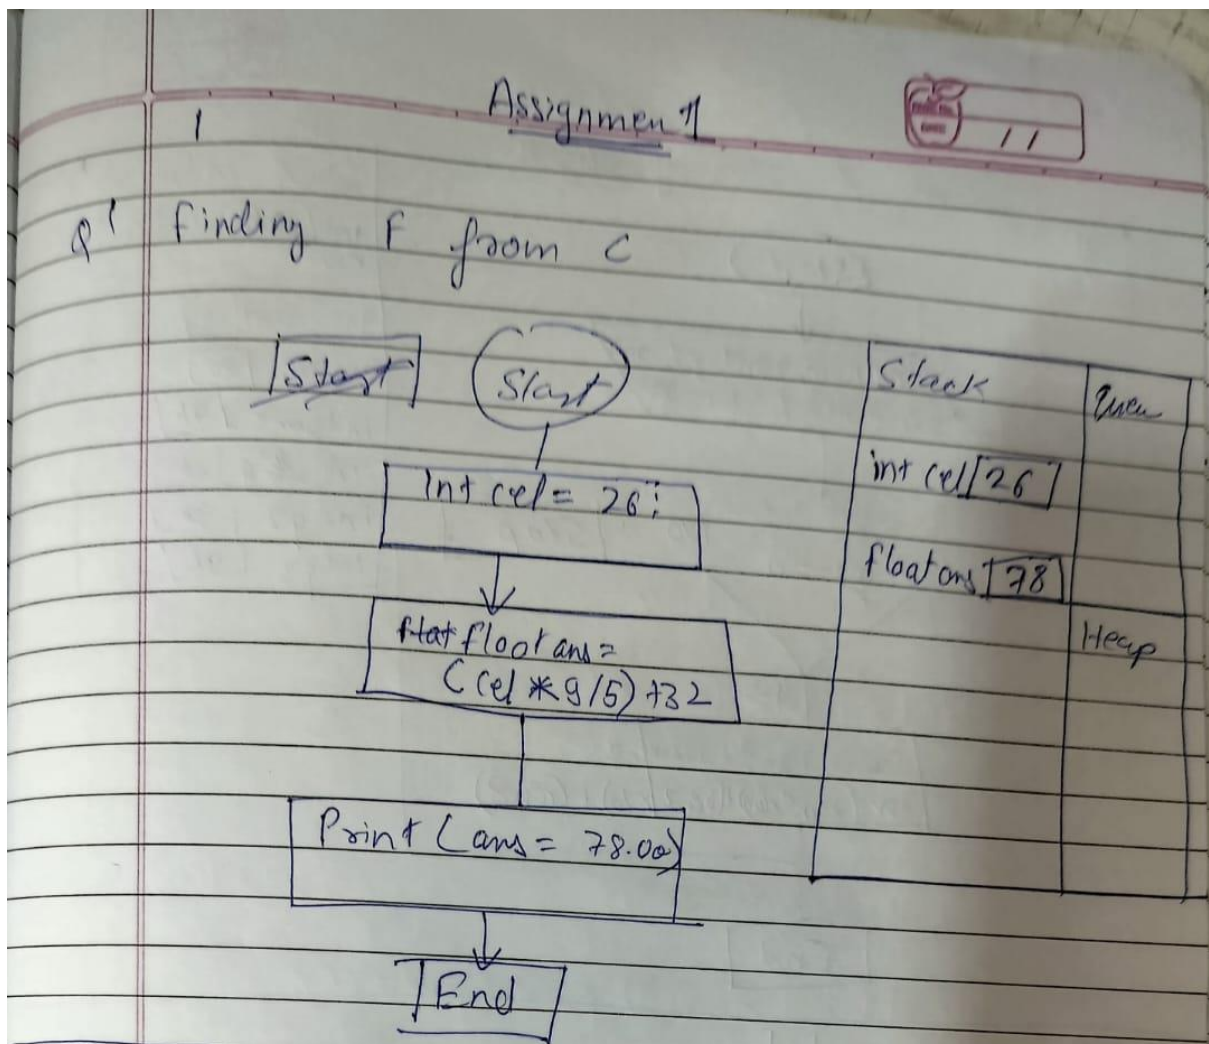 Assignment
1
Q1 Finding F from C
Start
Start
int cel = 26;
flat float ans =
(cel * 9/5) +32
Print (ans = 78.00)
End
Stack
int cel 26
float ans 78
Heap